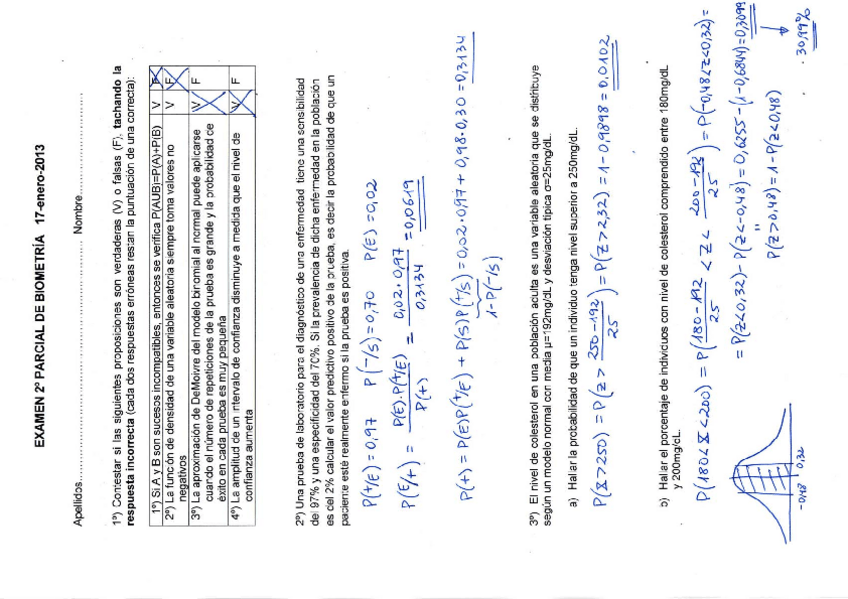 EXAMEN 2º PARCIAL DE BIOMETRÍA 17-enero-2013
Apellidos.......................................................... Nombre..............................
1º) Contestar si las siguientes proposiciones son verdaderas (V) o falsas (F), tachando la
respuesta incorrecta (cada dos respuestas erróneas restan la puntuación de una correcta):
1º) Si A y B son sucesos incompatibles, entonces se verifica P(AUB)=P(A)+P(B) V F
2º) La función de densidad de una variable aleatoria siempre toma valores no V F
negativos
3º) La aproximación de DeMoivre del modelo binomial al normal puede aplicarse V F
cuando el número de repeticiones de la prueba es grande y la probabilidad de
éxito en cada prueba es muy pequeña
4º) La amplitud de un intervalo de confianza disminuye a medida que el nivel de V F
confianza aumenta
2º) Una prueba de laboratorio para el diagnóstico de una enfermedad tiene una sensibilidad
del 97% y una especificidad del 70%. Si la prevalencia de dicha enfermedad en la población
es del 2% calcular el valor predictivo positivo de la prueba, es decir la probabilidad de que un
paciente esté realmente enfermo si la prueba es positiva.
P(+/E)=0,97 P(-/S)=0,70 P(E)=0,02
P(E/+) = P(E).P(+/E) / P(+) = 0,02·0,97 / 0,3134 = 0,0619
P(+) = P(E)P(+/E) + P(S)P(+/S) = 0,02·0,97 + 0,98·0,30 = 0,3134
1-P(-/S)
3º) El nivel de colesterol en una población adulta es una variable aleatoria que se distribuye
según un modelo normal con media µ=192mg/dL y desviación típica σ=25mg/dL.
a) Hallar la probabilidad de que un individuo tenga nivel superior a 250mg/dL.
P(X>250) = P(Z > 250-192 / 25) = P(Z>2,32) = 1-0,9898 = 0,0102
b) Hallar el porcentaje de individuos con nivel de colesterol comprendido entre 180mg/dL
y 200mg/dL.
P(180<X<200) = P(180-192 / 25 < Z < 200-192 / 25) = P(-0,48<Z<0,32) =
= P(Z<0,32) - P(Z<-0,48) = 0,6255-(1-0,6844) = 0,3099
"
P(Z>0,48) = 1-P(Z<0,48)
30,99%
-0,48 0,32